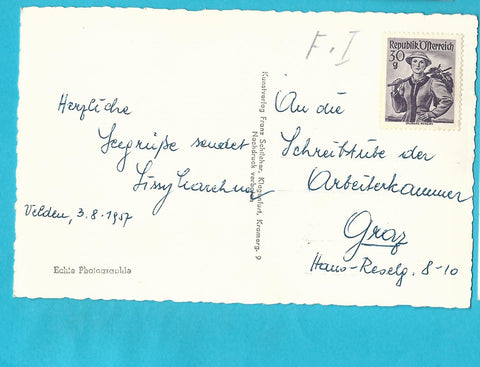 F. I
Republik Österreich
30
g
Herzliche
Seegrüße sendet
Sissy
Velden, 3.8.1957
Echte Photographie
Kunstverlag Franz Schilcher, Klagenfurt, Kramerg. 9
Nachdruck verboten
An die
Schreibstube der
Arbeiterkammer
Graz
Hans-Reselg. 8-10